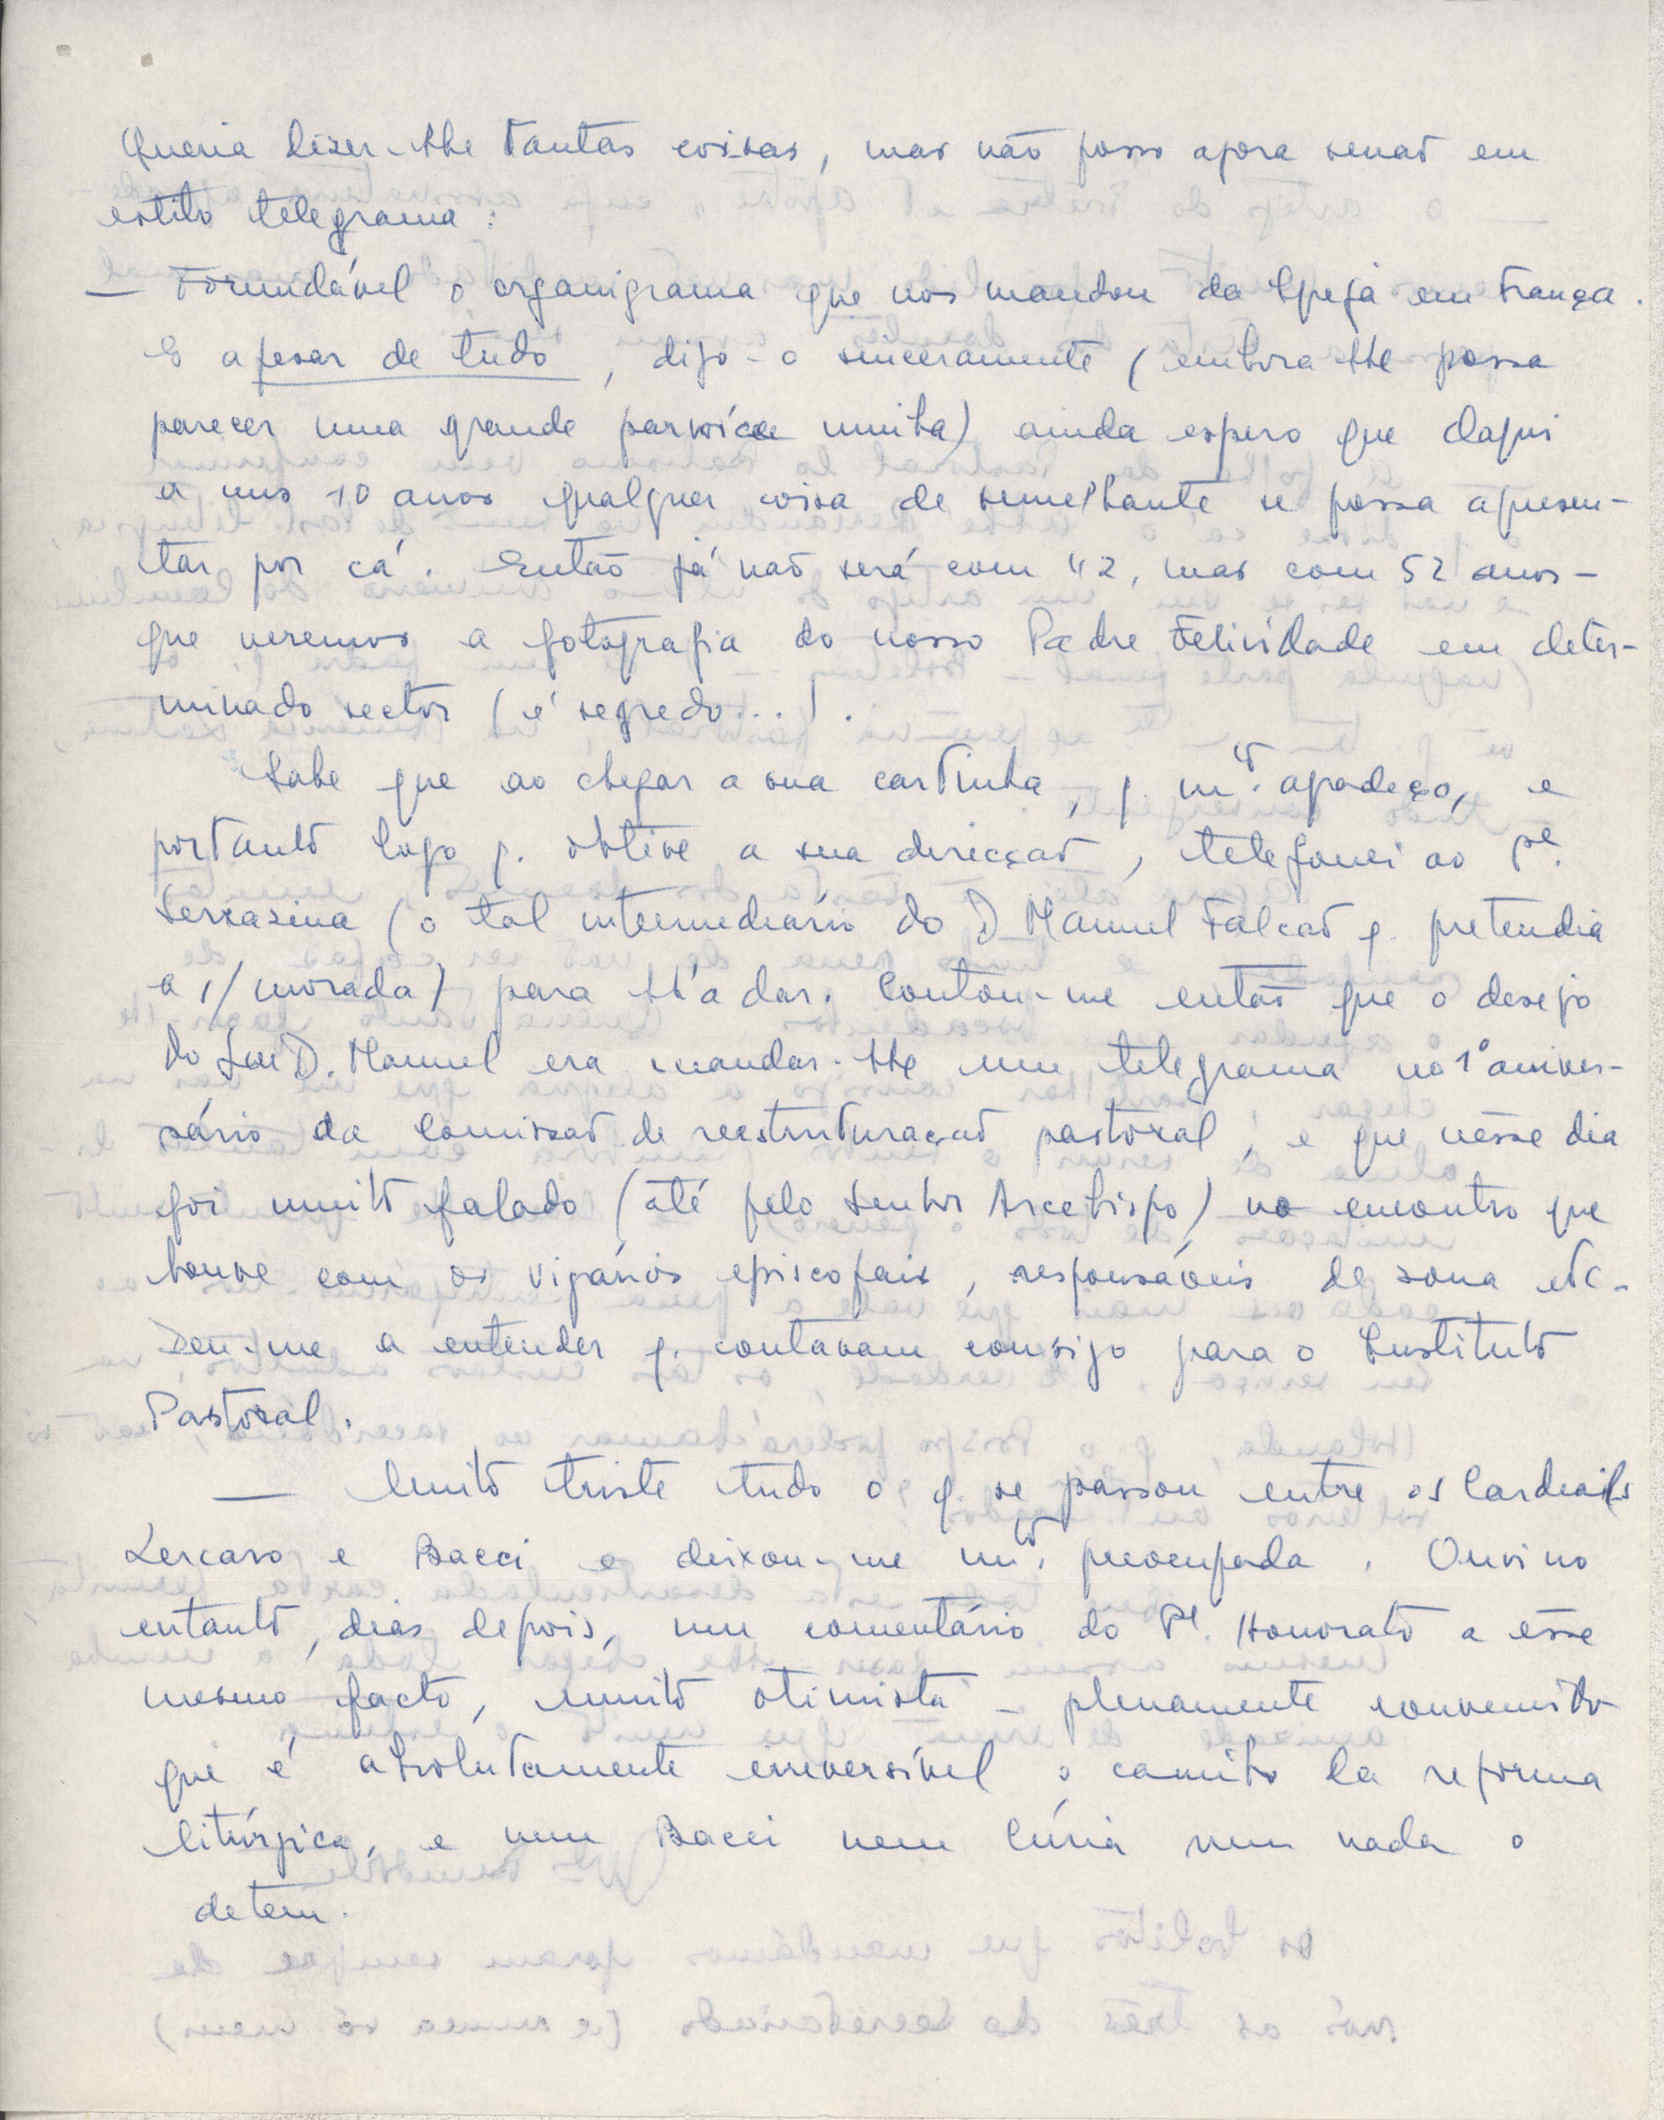 Queria dizer-lhe tantas coisas, mas não posso agora senão em
estilo telegrama:
— Formidável o organigrama que nos mandou da Igreja em França.
E apesar de tudo, digo-o sinceramente (embora lhe possa
parecer uma grande parvoíce minha) ainda espero que daqui
a uns 10 anos qualquer coisa de semelhante se possa apresen-
tar por cá. Então já não será com 42, mas com 52 anos-
que veremos a fotografia do nosso Padre Felicidade em deter-
minado sector (é segredo...).
Sabe que ao chegar a sua cartinha, q. mtº. agradeço, e
portanto logo q. obtive a sua direcção, telefonei ao Pe.
Serrazina (o tal intermediário do D Manuel Falcão q. pretendia
a s/ morada) para lh'a dar. Contou-me então que o desejo
do Snr D. Manuel era mandar-lhe um telegrama no 1º aniver-
sário da Comissão de reestruturação pastoral, e que nesse dia
foi muito falado (até pelo Senhor Arcebispo) no encontro que
houve com os vigários episcopais, responsáveis de zona etc-
Deu-me a entender q. contavam consigo para o Instituto
Pastoral.
— Muito triste tudo o q. se passou entre os Cardiais
Lercaro e Bacci e deixou-me mtº. preocupada. Ouvi no
entanto, dias depois, um comentário do Pe. Honorato a esse
mesmo facto, muito otimista - plenamente convencido
que é absolutamente irreversível o caminho da reforma
litúrgica, e nem Bacci nem Cúria nem nada o
detem.